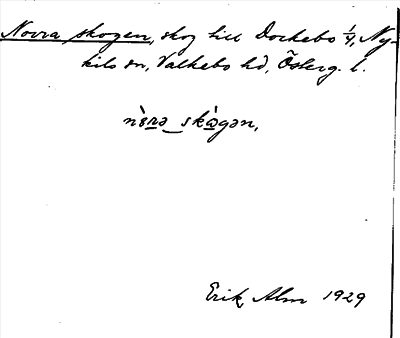 Norra skogen, skog till Dockebo 1/4, Ny-
kils sn, Valkebo hd, Österg. l.
nòrə_skògən,
Erik Alm 1929